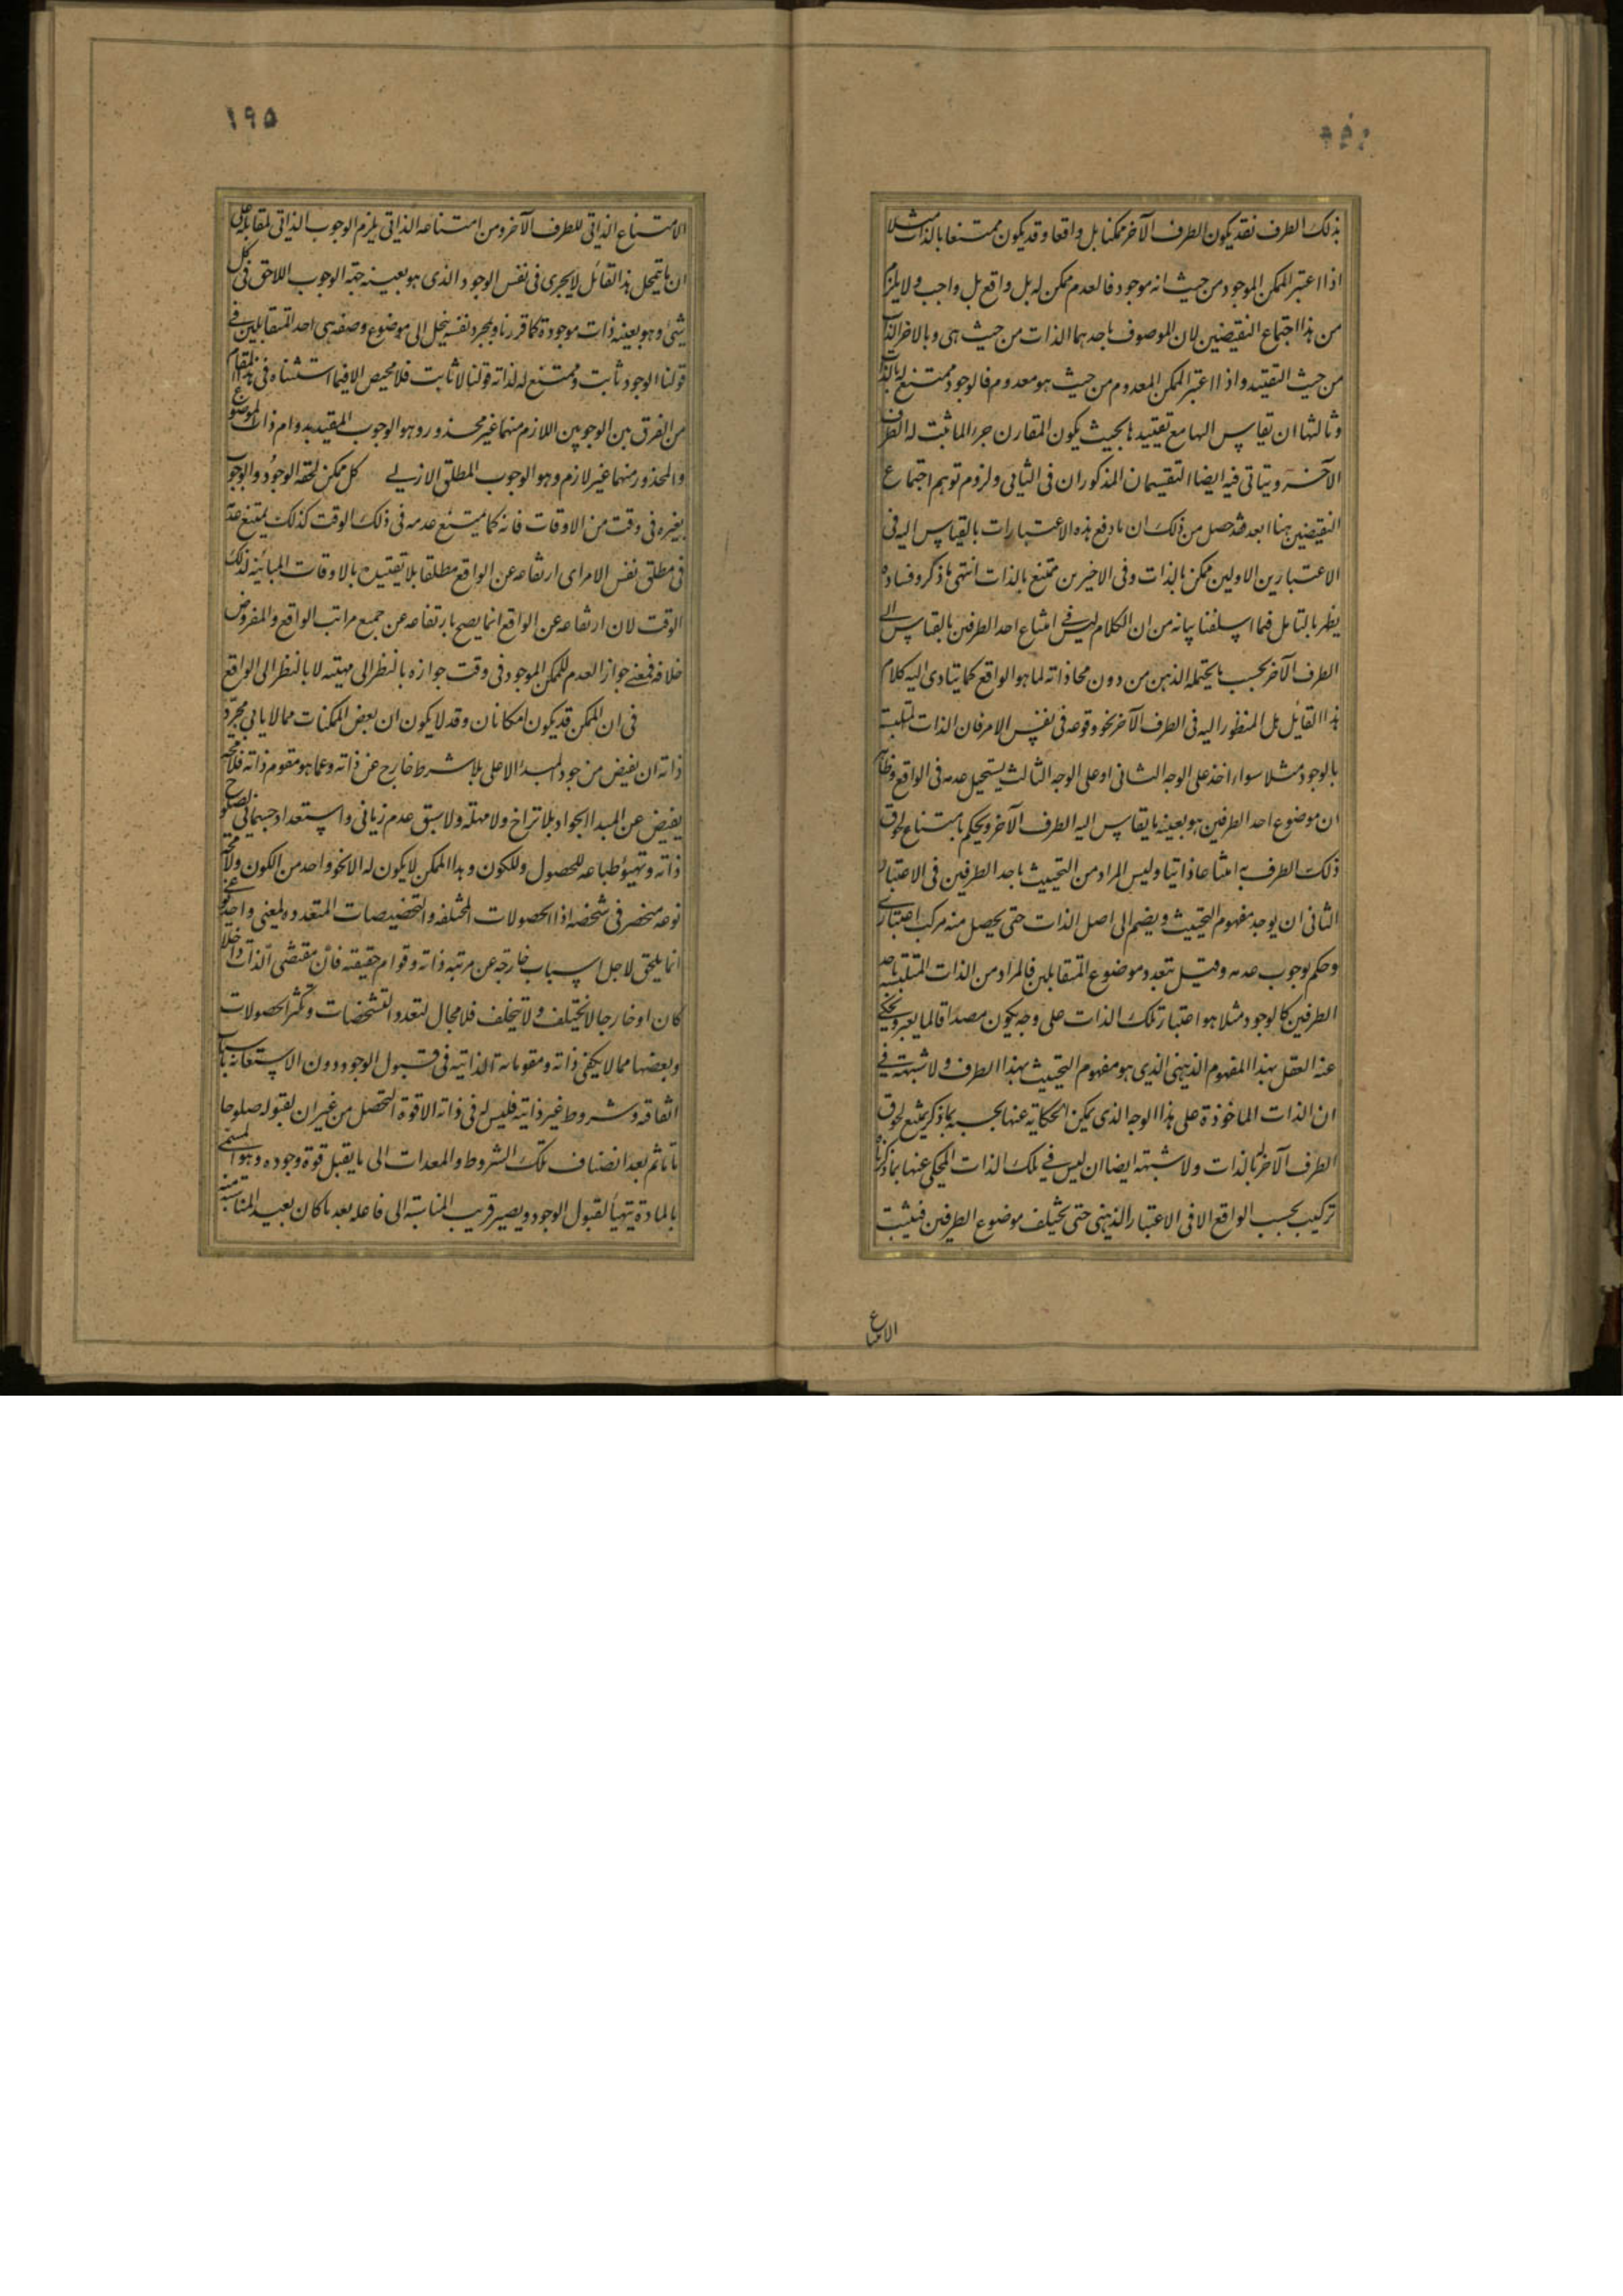 بذلك الطرف فقد يكون الطرف الآخر ممكنا بل واقعا وقد يكون ممتنعا بالذات مثلا
اذا اعتبر الممكن الموجود من حيث انه موجود فالعدم ممكن له بل واقع بل واجب ولا يلزم
من هذا اجتماع النقيضين لان الموصوف باحدهما الذات من حيث هى وبالاخر الذات
من حيث التقييد واذا اعتبر الممكن المعدوم من حيث هو معدوم فالوجود ممتنع له بالذات
وثالثها ان تقاس اليها مع تقييدها بحيث يكون المقارن جزء لما ثبت له الطرف
الآخر ويتاتى فيه ايضا التقسيمان المذكوران فى الثانى ولزوم توهم اجتماع
النقيضين هنا ابعد فقد حصل من ذلك ان ما دفع هذه الاعتبارات بالقياس اليه فى
الاعتبارين الاولين ممكن بالذات وفى الاخيرين ممتنع بالذات انتهى ما ذكر وفساده
يظهر بالتامل فيما اسلفنا بيانه من ان الكلام ليس فى امتناع احد الطرفين بالقياس الى
الطرف الآخر بحسب ما يحتمله الذهن من دون محاذاته لما هو الواقع كما يتادى اليه كلام
هذا القايل بل المنظور اليه فى الطرف الآخر نحو وقوعه فى نفس الامر فان الذات المتلبسة
بالوجود مثلا سواء اخذ على الوجه الثانى او على الوجه الثالث يستحيل عدمه فى الواقع وظاهر
ان موضوع احد الطرفين هو بعينه ما يقاس اليه الطرف الآخر ويحكم بامتناع لحوق
ذلك الطرف به امتناعا ذاتيا وليس المراد من التحييث باحد الطرفين فى الاعتبار
الثانى ان يوجد مفهوم التحييث ويضم الى اصل الذات حتى يحصل منه مركب اعتبارى
وحكم بوجوب عدمه وقيل بتعدد موضوع المتقابلين فالمراد من الذات المتلبسة باحد
الطرفين كالوجود مثلا هو اعتبار تلك الذات على وجه يكون مصداقا لما يعبر ويحكى
عنه العقل بهذا المفهوم الذهنى الذى هو مفهوم التحييث بهذا الطرف ولا شبهة فى
ان الذات الماخوذة على هذا الوجه الذى يمكن الحكاية عنها بحسبه بما ذكر يمتنع لحوق
الطرف الآخر بالذات ولا شبهة ايضا ان ليس فى تلك الذات المحكى عنها بما ذكرناه
تركيب بحسب الواقع الا فى الاعتبار الذهنى حتى يختلف موضوع الطرفين فيثبت
الامتناع
١٩٥
الامتناع الذاتى للطرف الآخر ومن امتناعه الذاتى يلزم الوجوب الذاتى لمقابله على
ان ما يتمحل هذا القائل لا يجرى فى نفس الوجود الذى هو بعينه جهة الوجوب اللاحق فى كل
شئ وهو بعينه ذات موجودة كما قررنا وبمجرد نفسه ينحل الى موضوع وصفة هى احد المتقابلين فى
قولنا الوجود ثابت وممتنع له لذاته قولنا لا ثابت فلا محيص الا فيما استثناه فى هذا المقام
من الفرق بين الوجوبين اللازم منهما غير محذور وهو الوجوب المقيد بدوام ذات الموضوع
والمحذور منهما غير لازم وهو الوجوب المطلق الازلى كل ممكن لحقه الوجود والوجوب
بغيره فى وقت من الاوقات فانه كما يمتنع عدمه فى ذلك الوقت كذلك يمتنع عدمه
فى مطلق نفس الامر اى ارتفاعه عن الواقع مطلقا بلا تقييده بالاوقات المباينة لذلك
الوقت لان ارتفاعه عن الواقع انما يصح بارتفاعه عن جميع مراتب الواقع والمفروض
خلافه فمعنى جواز العدم للممكن الموجود فى وقت جوازه بالنظر الى مهيته لا بالنظر الى الواقع
فى ان الممكن قد يكون امكانان وقد لا يكون ان بعض الممكنات مما لا يابى مجرد
ذاته ان يفيض من جود المبدا الاعلى بلا شرط خارج عن ذاته وعما هو مقوم ذاته فلا محة
يفيض عن المبدا الجواد بلا تراخ ولا مهلة ولا سبق عدم زمانى واستعداد جسمانى لصلوح
ذاته وتهيؤ طباعه للحصول وللكون وهذا الممكن لا يكون له الا نحو واحد من الكون ولا محة
نوعه منحصر فى شخصه اذ الحصولات المختلفه والتخصيصات المتعدده لمعنى واحد نوعى
انما يلحق لاجل اسباب خارجة عن مرتبة ذاته وقوام حقيقته فان مقتضى الذات داخلا
كان او خارجا لا يختلف ولا يتخلف فلا مجال لتعدد التشخصات وتكثر الحصولات
وبعضها مما لا يكفى ذاته ومقوماته الذاتية فى قبول الوجود دون الاستعانة باسباب
اتفاقة وشروط غير ذاتية فليس له فى ذاته الا قوة التحصل من غير ان يقبوله صلوحا
تاما ثم بعد انضياف تلك الشروط والمعدات الى ما يقبل قوة وجوده وهو المسمى
بالمادة يتهيأ لقبول الوجود ويصير قريب المناسبة الى فاعله بعد ما كان بعيد المناسبة منه